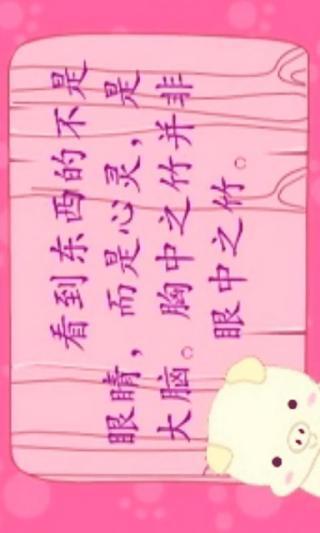 看到东西的不是
眼睛，而是心灵，是
大脑。胸中之竹并非
眼中之竹。